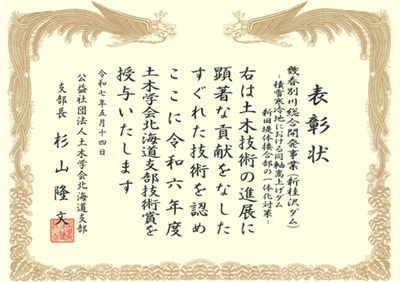 表彰状
幾春別川総合開発事業（新桂沢ダム）
－積雪寒冷地における同軸嵩上げダム
新旧堤体接合部の一体化対策－
右は土木技術の進展に
顕著な貢献をなした
すぐれた技術を認め
ここに令和六年度
土木学会北海道支部技術賞を
授与いたします
令和七年五月十四日
公益社団法人土木学会北海道支部
支部長 杉山隆文